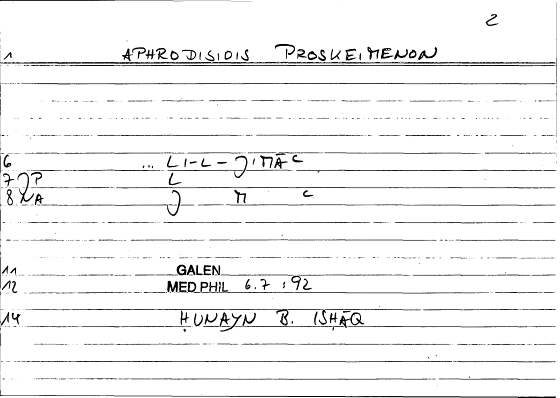 2
1 APHRODISIOIS PROSKEIMENON
6 ... LI-L-JIMĀC
7 JP L
8 NA J M C
11 GALEN
12 MED PHIL 6.7 :92
14 ḤUNAYN B. ISḤĀQ